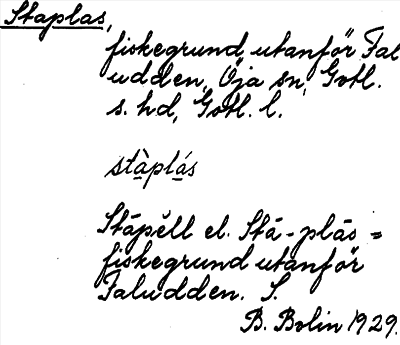 Staplas,
fiskegrund utanför Fal
udden, Öja sn, Gotl.
s. hd, Gotl. l.
stàplás
Stāpĕll el. Stā-plās =
fiskegrund utanför
Faludden. S.
B. Bolin 1929.